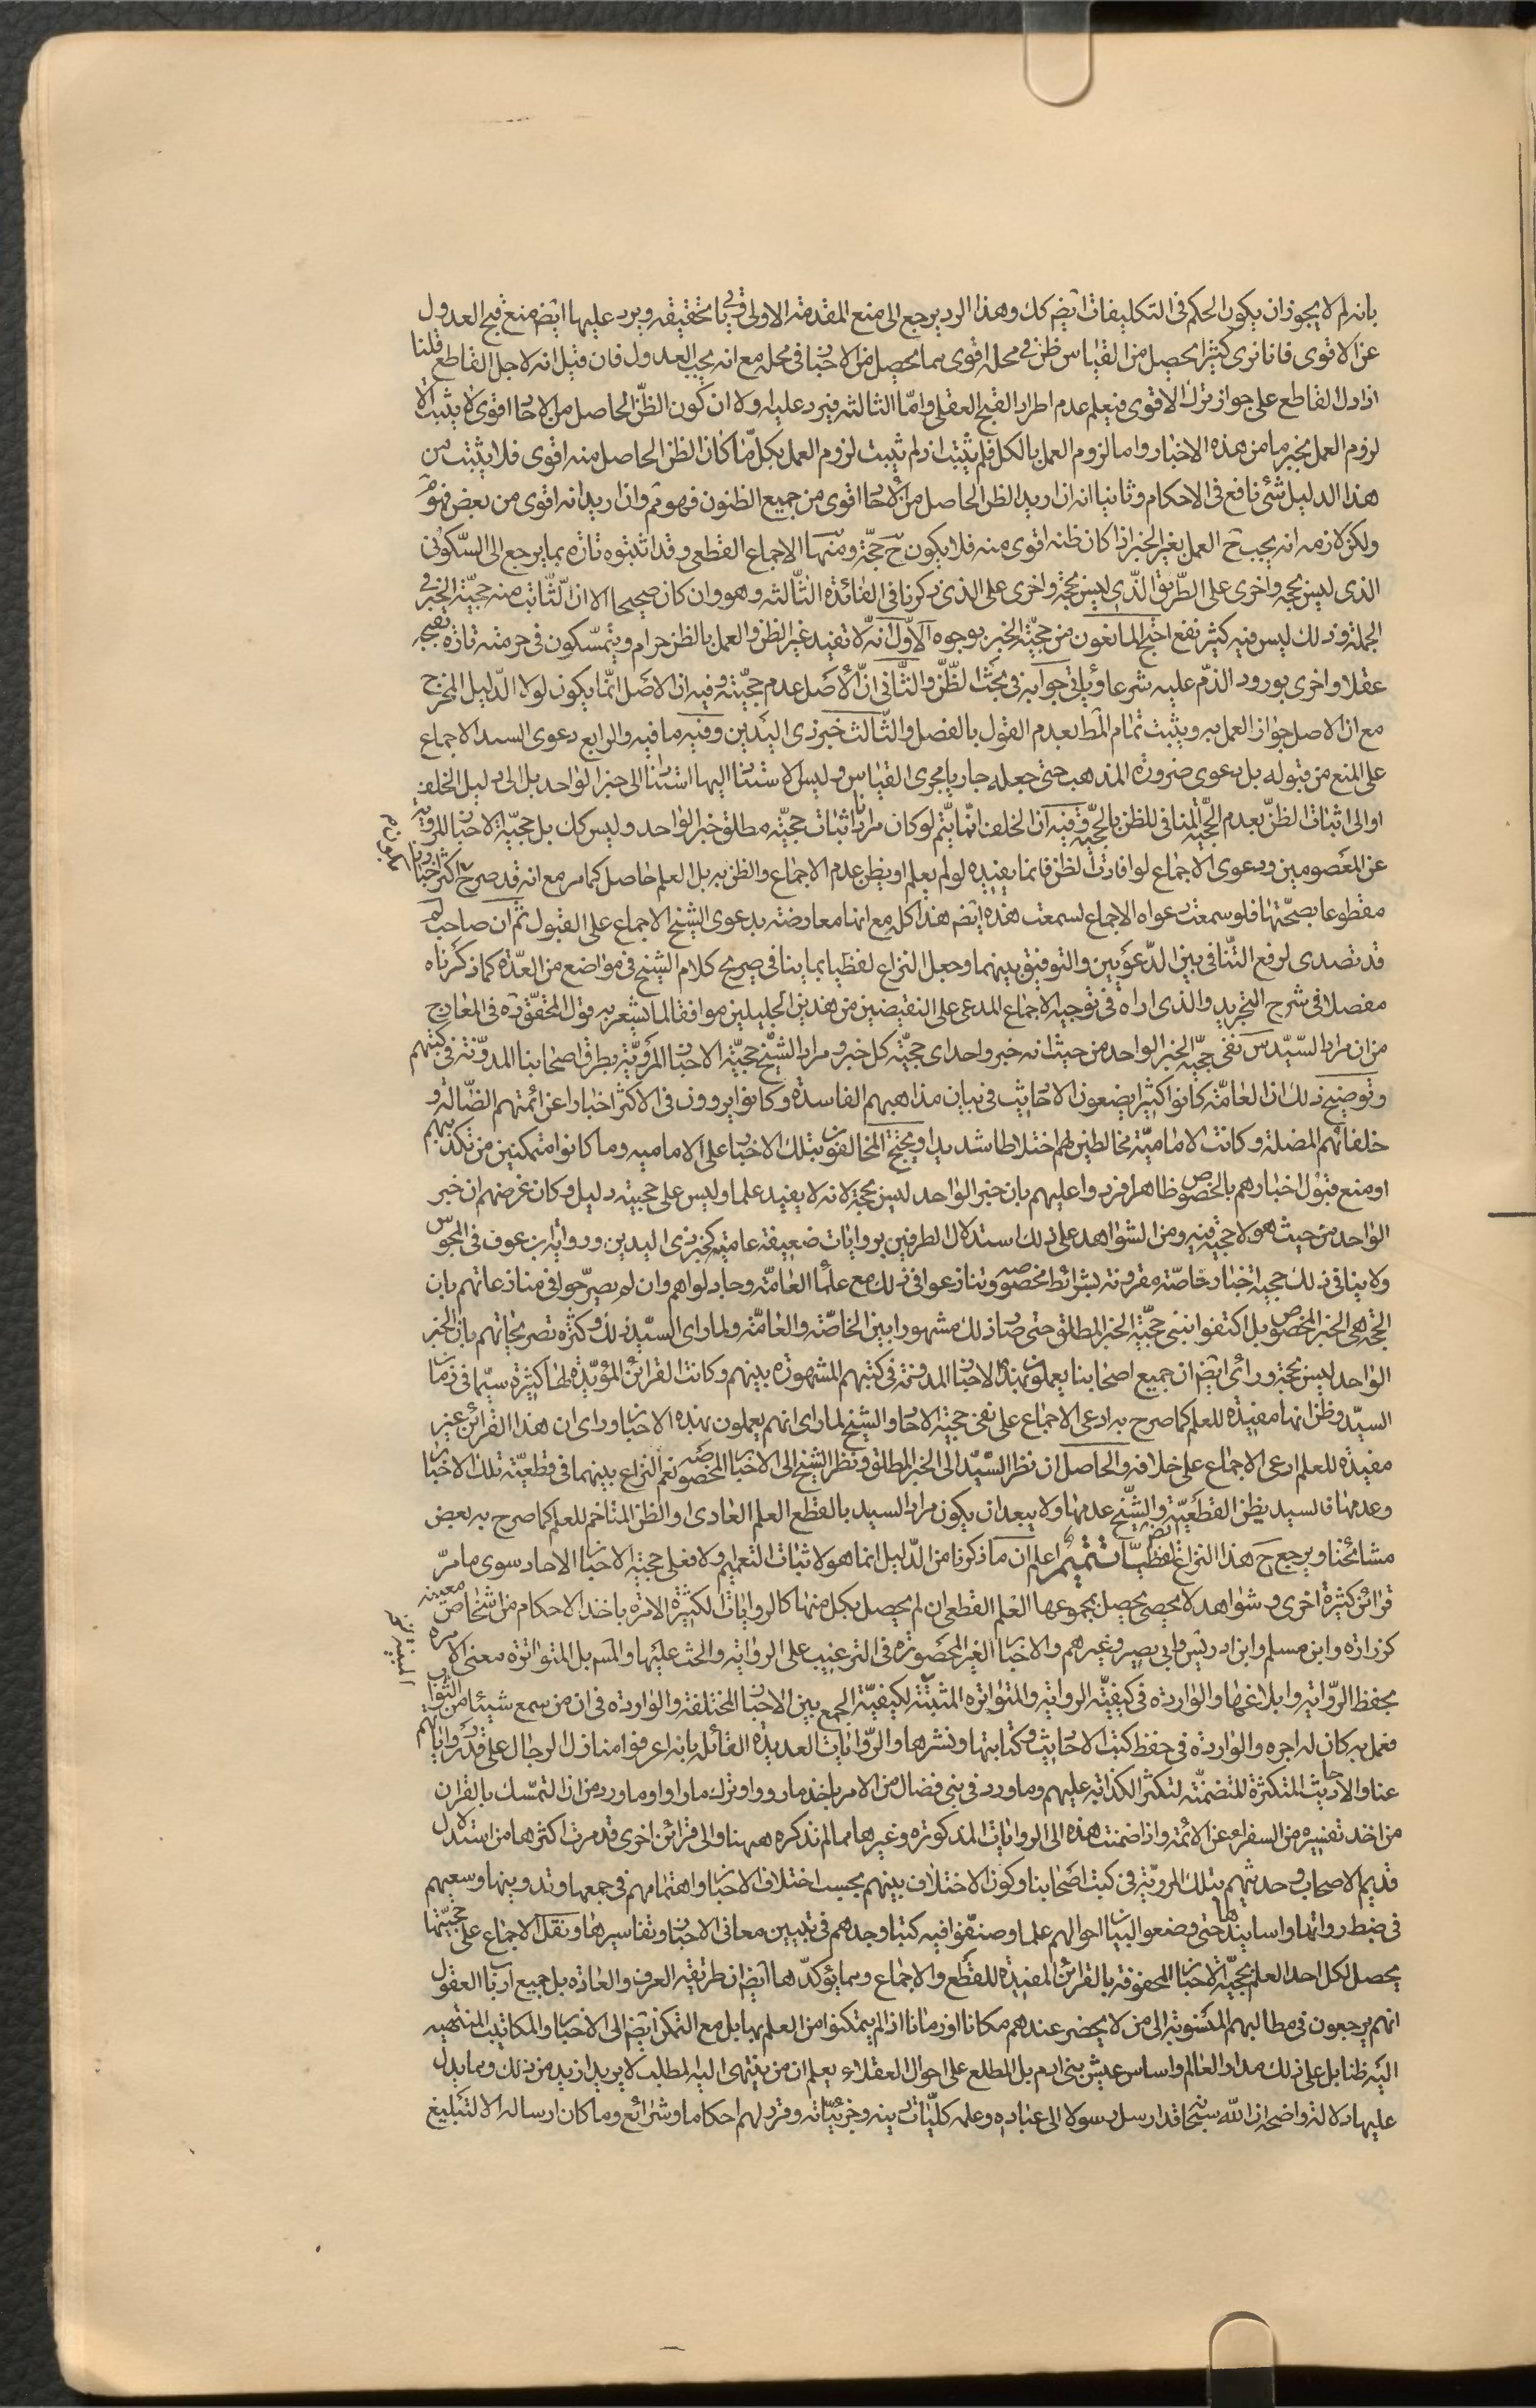 بانه لم لا يجوز ان يكون الحكم فى التكليفات ايضم كك وهذا الرد يرجع الى منع المقدمة الاولى وقد يا تحقيقه ويرد عليها ايضم منع قبح العدول
عن الاقوى فانا نرى كثيرا يحصل من القياس ظن فى محله اقوى مما يحصل من الاخبار فى محله مع انه يجب العدول فان قيل انه لاجل القاطع قلنا
اذا دل القاطع على جواز ترك الاقوى فيعلم عدم اطراد القبح العقلى واما الثالثه فيرد عليه ولا ان كون الظن الحاصل من الاحاد اقوى لا يثبت الا
لزوم العمل بخبر ما من هذه الاخبار واما لزوم العمل بالكل فلم يثبت اذ لم يثبت لزوم العمل بكل ما كان الظن الحاصل منه اقوى فلا يثبت من
هذا الدليل شئ نافع فى الاحكام وثانيا انه ان اريد الظن الحاصل من الاحاد اقوى من جميع الظنون فهو ثم وان اريد انه اقوى من بعض فهو
ولكن لازمه انه يجب ح العمل بغير الخبر اذا كان ظنه اقوى منه فلا يكون ح حجة ومنها الاجماع القطعى وقد اثبتوه تارة بما يرجع الى السكوتى
الذى ليس بحجة واخرى على الطريق الذى ليس بحجة واخرى على الذى ذكرنا فى الفائدة الثالثه وهو وان كان صحيحا الا ان الثابت منه حجية الخبر فى
الجملة وذلك ليس فيه كثير نفع احتج المانعون من حجية الخبر بوجوه الاول انه لا تفيد غير الظن والعمل بالظن حرام ويتمسكون فى حرمته تارة بقبحه
عقلا واخرى بورود الذم عليه شرعا ويأتى جوابه فى بحث الظن والثانى ان الاصل عدم حجيته وفيه ان الاصل انما يكون لولا الدليل المخرج
مع ان الاصل جواز العمل به ويثبت تمام المط بعدم القول بالفصل والثالث خبر ذى اليدين وفيه ما فيه والرابع دعوى السيد الاجماع
على المنع من قبوله بل دعوى ضرورة المذهب حتى جعله جاريا مجرى القياس وليس الاستناد اليها استنادا الى خبر الواحد بل الى دليل الخلف
او الى اثبات الظن بعدم الحجية المنافى للظن بالحجية وفيه ان الخلف انما يتم لو كان مرادنا اثبات حجية مطلق خبر الواحد وليس كك بل حجية الاخبار المروية
عن المعصومين ودعوى الاجماع لو افادت الظن فانما يفيده لو لم يعلم او يظن عدم الاجماع والظن به بل العلم حاصل كما مر مع انه قد صرح اكثر اخبارنا
مقطوعا بصحتها فلو سمعت دعواه الاجماع لسمعت هذه ايضم هذا كله مع انها معارضة بدعوى الشيخ الاجماع على القبول ثم ان صاحب لم
قد تصدى لرفع التنافى بين الدعويين والتوفيق بينهما وجعل النزاع لفظيا بما ينافى صريح كلام الشيخ فى مواضع من العدة كما ذكرناه
مفصلا فى شرح التجريد والذى اراه فى توجيه الاجماع المدعى على النقيضين من هذين الجليلين موافقا لما يشعر به قول المحقق ره فى المعارج
من ان مراد السيد س نفى حجية الخبر الواحد من حيث انه خبر واحد اى حجية كل خبر ومراد الشيخ حجية الاخبار المروية بطرق اصحابنا المدونة فى كتبهم
وتوضيح ذلك ان العامة كانوا كثيرا يضعون الاحاديث فى بيان مذاهبهم الفاسدة وكانوا يروون فى الاكثر اخبارا عن ائمتهم الضالة و
خلفائهم المضلة وكانت الامامية مخالطين لهم اختلاطا شديدا ويحتج المخالفون بتلك الاخبار على الاماميه وما كانوا متمكنين من تكذيبهم
او منع قبول اخبارهم بالخصوص ظاهرا فردوا عليهم بان خبر الواحد ليس بحجة لانه لا يفيد علما وليس على حجيته دليل وكان غرضهم ان خبر
الواحد من حيث هو لا حجية فيه ومن الشواهد على ذلك استدلال الطرفين بروايات ضعيفة عامية كخبر ذى اليدين ورواية ابن عوف فى المجوس
ولا ينافى ذلك حجية اخبار خاصة مقرونة بشرائط مخصوصه وتنازعوا فى ذلك مع علماء العامة وجادلوهم وان لم يصرحوا فى منازعاتهم بان
الحجة هى الخبر المخصوص بل اكتفوا بنفى حجية الخبر المطلق حتى صار ذلك مشهورا بين الخاصة والعامة ولما راى السيد ذلك وكثرة تصريحاتهم بان الخبر
الواحد ليس بحجة وراى ايضم ان جميع اصحابنا يعملون بهذه الاخبار المدونة فى كتبهم المشهورة بينهم وكانت القرائن المؤيدة لها كثيرة سيما فى زمان
السيد وظن انها مفيدة للعلم كما صرح به ادعى الاجماع على نفى حجية الاحاد والشيخ لما راى انهم يعملون بهذه الاخبار وراى ان هذا القرائن غير
مفيدة للعلم ادعى الاجماع على خلافه والحاصل ان نظر السيد الى الخبر المطلق ونظر الشيخ الى الاخبار المخصوصه نعم النزاع بينهما فى قطعية تلك الاخبار
وعدمها فالسيد يظن القطعية والشيخ عدمها ولا يبعد ان يكون مراد السيد بالقطع العلم العادى او الظن المتاخم للعلم كما صرح به بعض
مشائخنا ويرجع ح هذا النزاع لفظيا ايضم تتميم اعلم ان ما ذكرنا من الدليل انما هو لاثبات التعميم والا فعلى حجية الاخبار الاحاد سوى ما مر
قرائن كثيرة اخرى وشواهد لا يحصى يحصل بمجموعها العلم القطعى ان لم يحصل بكل منها كالروايات الكثيرة الامرة باخذ الاحكام من اشخاص معينه
كزرارة وابن مسلم وابن ادريس وابى بصير وغيرهم والاخبار الغير المحصورة فى الترغيب على الرواية والحث عليها بل المتواترة معنى الامرة
بحفظ الرواية وابلاغها والواردة فى كيفية الرواية والمتواترة المثبتة لكيفية الجمع بين الاخبار المختلفة والواردة فى ان من سمع شيئا من الثواب
فعمل به كان له اجره والواردة فى حفظ كتب الاحاديث وكتابتها ونشرها والروايات العديدة القائله بانه اعرفوا منازل الرجال على قدر رواياتهم
عنا والاحاديث المتكثرة المتضمنة لتكثر الكذابة عليهم وما ورد فى بنى فضال من الامر باخذ ما رووا وترك ما راوا وما ورد من ان التمسك بالقران
من اخذ تفسيره من السفراء عن الائمة واذا ضمنت هذه الى الروايات المذكورة وغيرها مما لم نذكره ههنا والى قرائن اخرى قد مرت اكثرها من استدلال
قديم الاصحاب وحديثهم بتلك المروية فى كتب اصحابنا وكون الاختلاف بينهم بحسب اختلاف الاخبار واهتمامهم فى جمعها وتدوينها وسعيهم
فى ضبط رواتها واسانيدها حتى وضعوا لبيان احوالهم علما وصنفوا فيه كتبا وجدهم فى تبيين معانى الاخبار وتفاسيرها ونقل الاجماع على حجيتها
يحصل لكل احد العلم بحجية الاخبار المحفوفة بالقرائن المفيدة للقطع والاجماع ومما يؤكدها ايضم ان طريقة العرف والعادة بل جميع ارباب العقول
انهم يرجعون فى مطالبهم المنسوبة الى من لا يحضر عندهم مكانا او زمانا اذا لم يتمكنوا من العلم بها بل مع التمكن ايضم الى الاخبار والمكاتيب المنتهيه
اليه ظنا بل على ذلك مدار العالم واساس عيش بنى ادم بل المطلع على احوال العقلاء يعلم ان من ينتهى اليه المطلب لا يريد ازيد من ذلك ومما يدل
عليها دلالة واضحة ان الله سبحانه قد ارسل رسولا الى عباده وعلمه كليات دينه وجزئياته وقرر لهم احكاما وشرائع وما كان ارساله الا لتبليغ